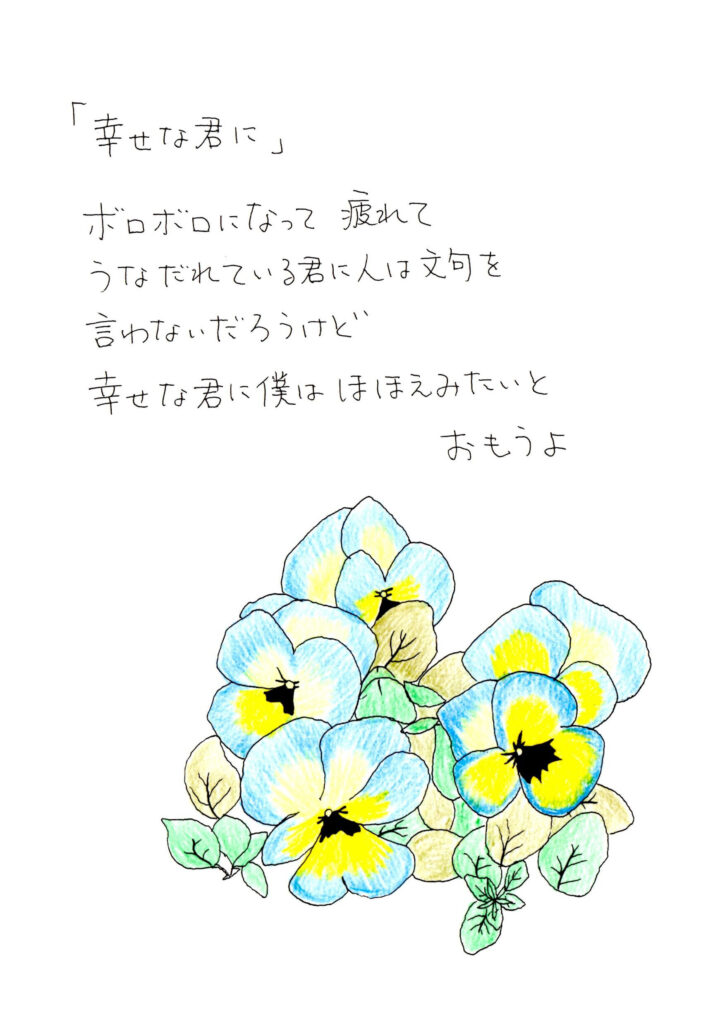 「幸せな君に」
ボロボロになって 疲れて
うなだれている君に人は文句を
言わないだろうけど
幸せな君に僕は ほほえみたいと
おもうよ